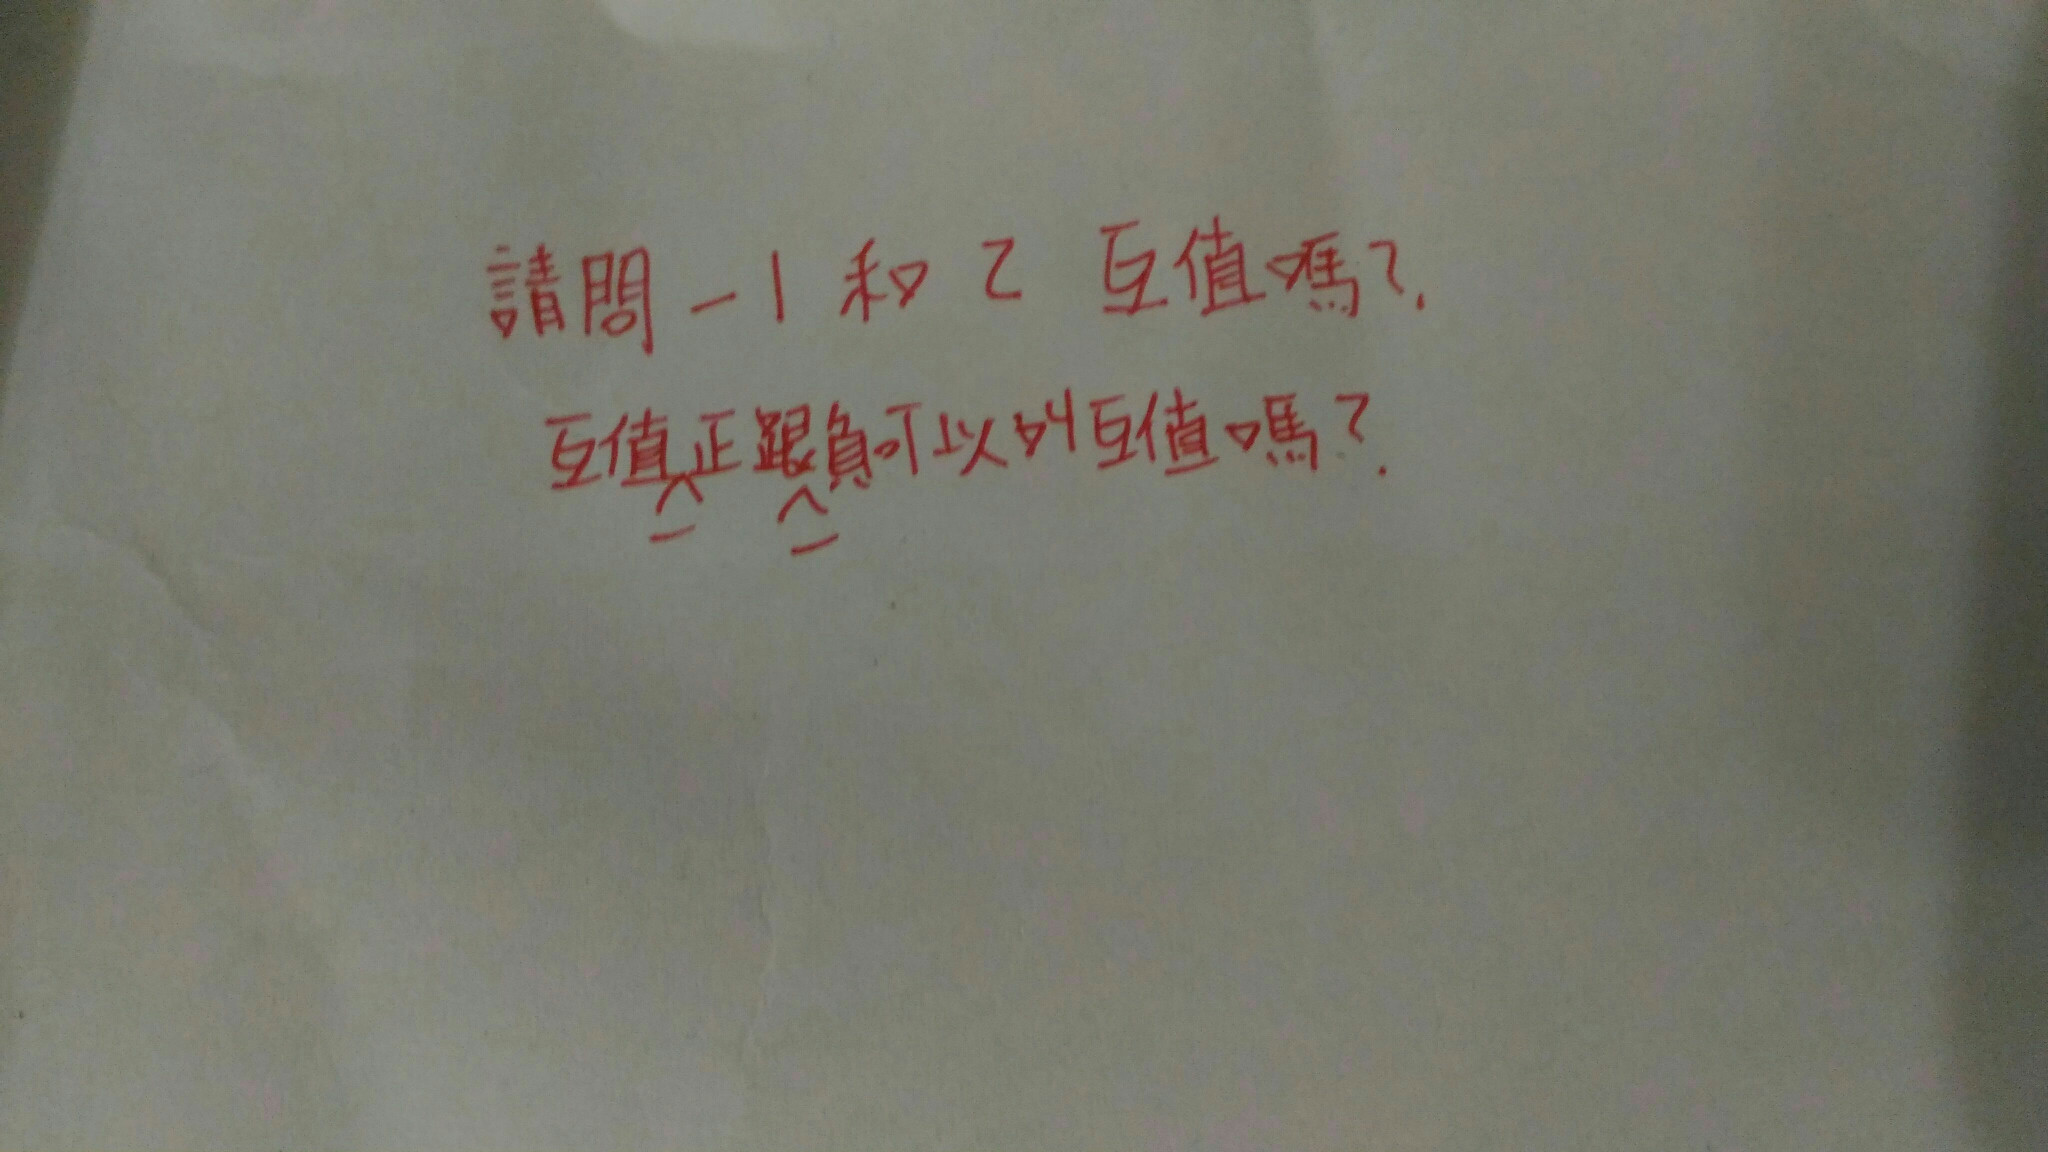 請問-1和2 互值嗎?
互值正跟負可以叫互值嗎?